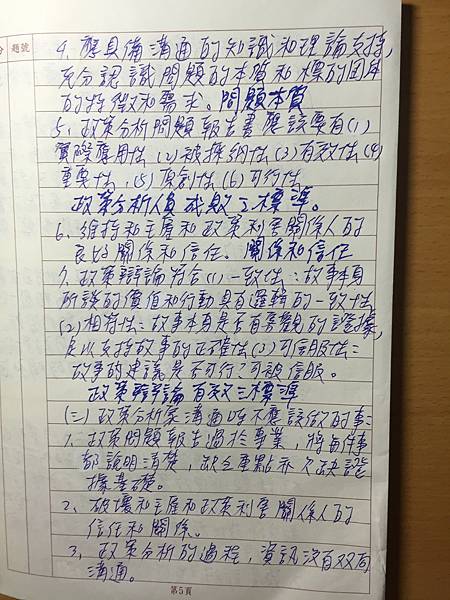 分 題號
4、應具備溝通的知識和理論支持,
充分認識問題的本質和標的團体
的特徵和需求。問題本質
5、政策分析問題報告書應該要有(1)
實際應用性 (2)被採納性(3)有效性(4)
重要性,(5)原創性(6)可行性
政策分析人員成敗之標準。
6、維持和主雇和政策利害關係人的
良好關係和信任。關係和信任
7、政策辯論符合(1)一致性:故事本身
所談的價值和行動具有邏輯的一致性
(2)相符性:故事本身是否有客觀的證據,
足以支持故事的正確性(3)可信服性:
故事的建議是否可行?可被信服。
政策辯論有效三標準
(三)政策分析家溝通時不應該做的事:
1、政策問題報告過於專業,將每件事
都說明清楚,缺乏重點亦欠缺證
據基礎。
2、破壞和主雇和政策利害關係人的
信任和關係。
3、政策分析的過程,資訊沒有双向
溝通。
第5頁